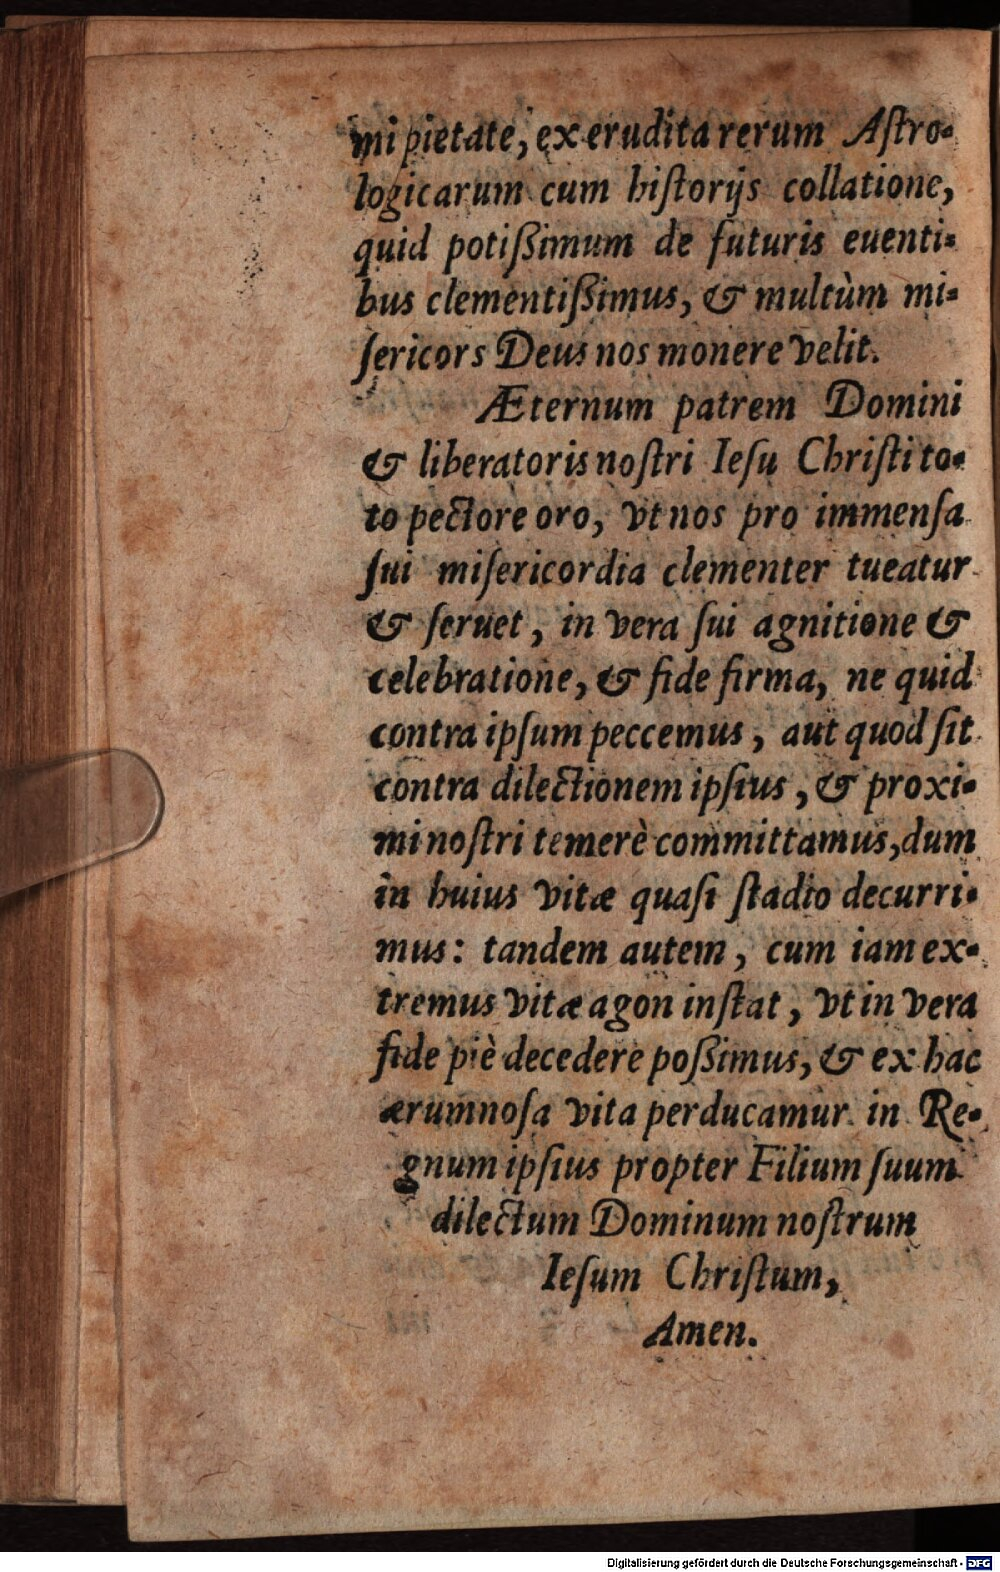 mi pietate, ex erudita rerum Aſtro-
logicarum cum hiſtorijs collatione,
quid potißimum de futuris euenti-
bus clementißimus, & multùm mi-
ſericors Deus nos monere velit.
Æternum patrem Domini
& liberatoris noſtri Ieſu Chriſti to-
to pectore oro, vt nos pro immenſa
ſui miſericordia clementer tueatur
& ſeruet, in vera ſui agnitione &
celebratione, & fide firma, ne quid
contra ipſum peccemus, aut quod ſit
contra dilectionem ipſius, & proxi-
mi noſtri temerè committamus, dum
in huius vitæ quaſi ſtadio decurri-
mus: tandem autem, cum iam ex-
tremus vitæ agon inſtat, vt in vera
fide piè decedere poßimus, & ex hac
ærumnoſa vita perducamur in Re-
gnum ipſius propter Filium ſuum
dilectum Dominum noſtrum
Ieſum Chriſtum,
Amen.
Digitalisierung gefördert durch die Deutsche Forschungsgemeinschaft - DFG